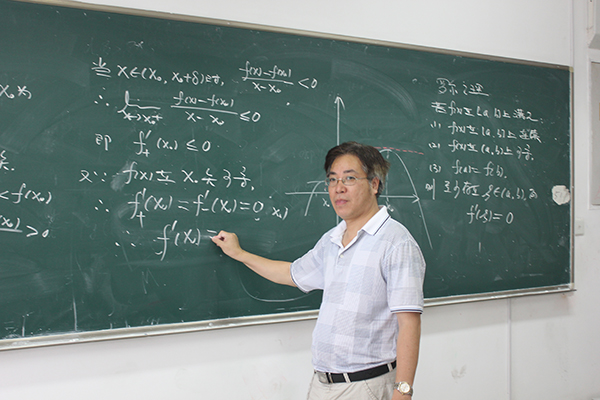 < f(x₀)
> 0
当 x∈(x₀, x₀+δ)时, f(x)-f(x₀) / x-x₀ < 0
∴ lim x→x₀⁺ f(x)-f(x₀) / x-x₀ ≤ 0
即 f'₊(x₀) ≤ 0
又∵ f(x)在 x₀点可导,
∴ f'₊(x₀) = f'₋(x₀) = 0
∴ f'(x₀) =
若 f(x)在[a,b]上满足:
(1) f(x)在[a,b]上连续
(2) f(x)在(a,b)上可导
(3) f(a)=f(b),
则 ξ∈(a,b),
f'(ξ)=0